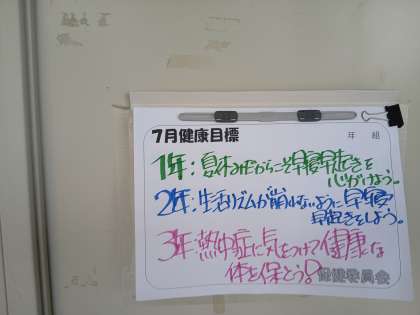 7月健康目標
年 組
1年:夏休みだからこそ早寝早起きを
心がけよう。
2年:生活リズムが崩れないように早寝
早起きをしよう。
3年:熱中症に気をつけて健康な
体を保とう!
保健委員会